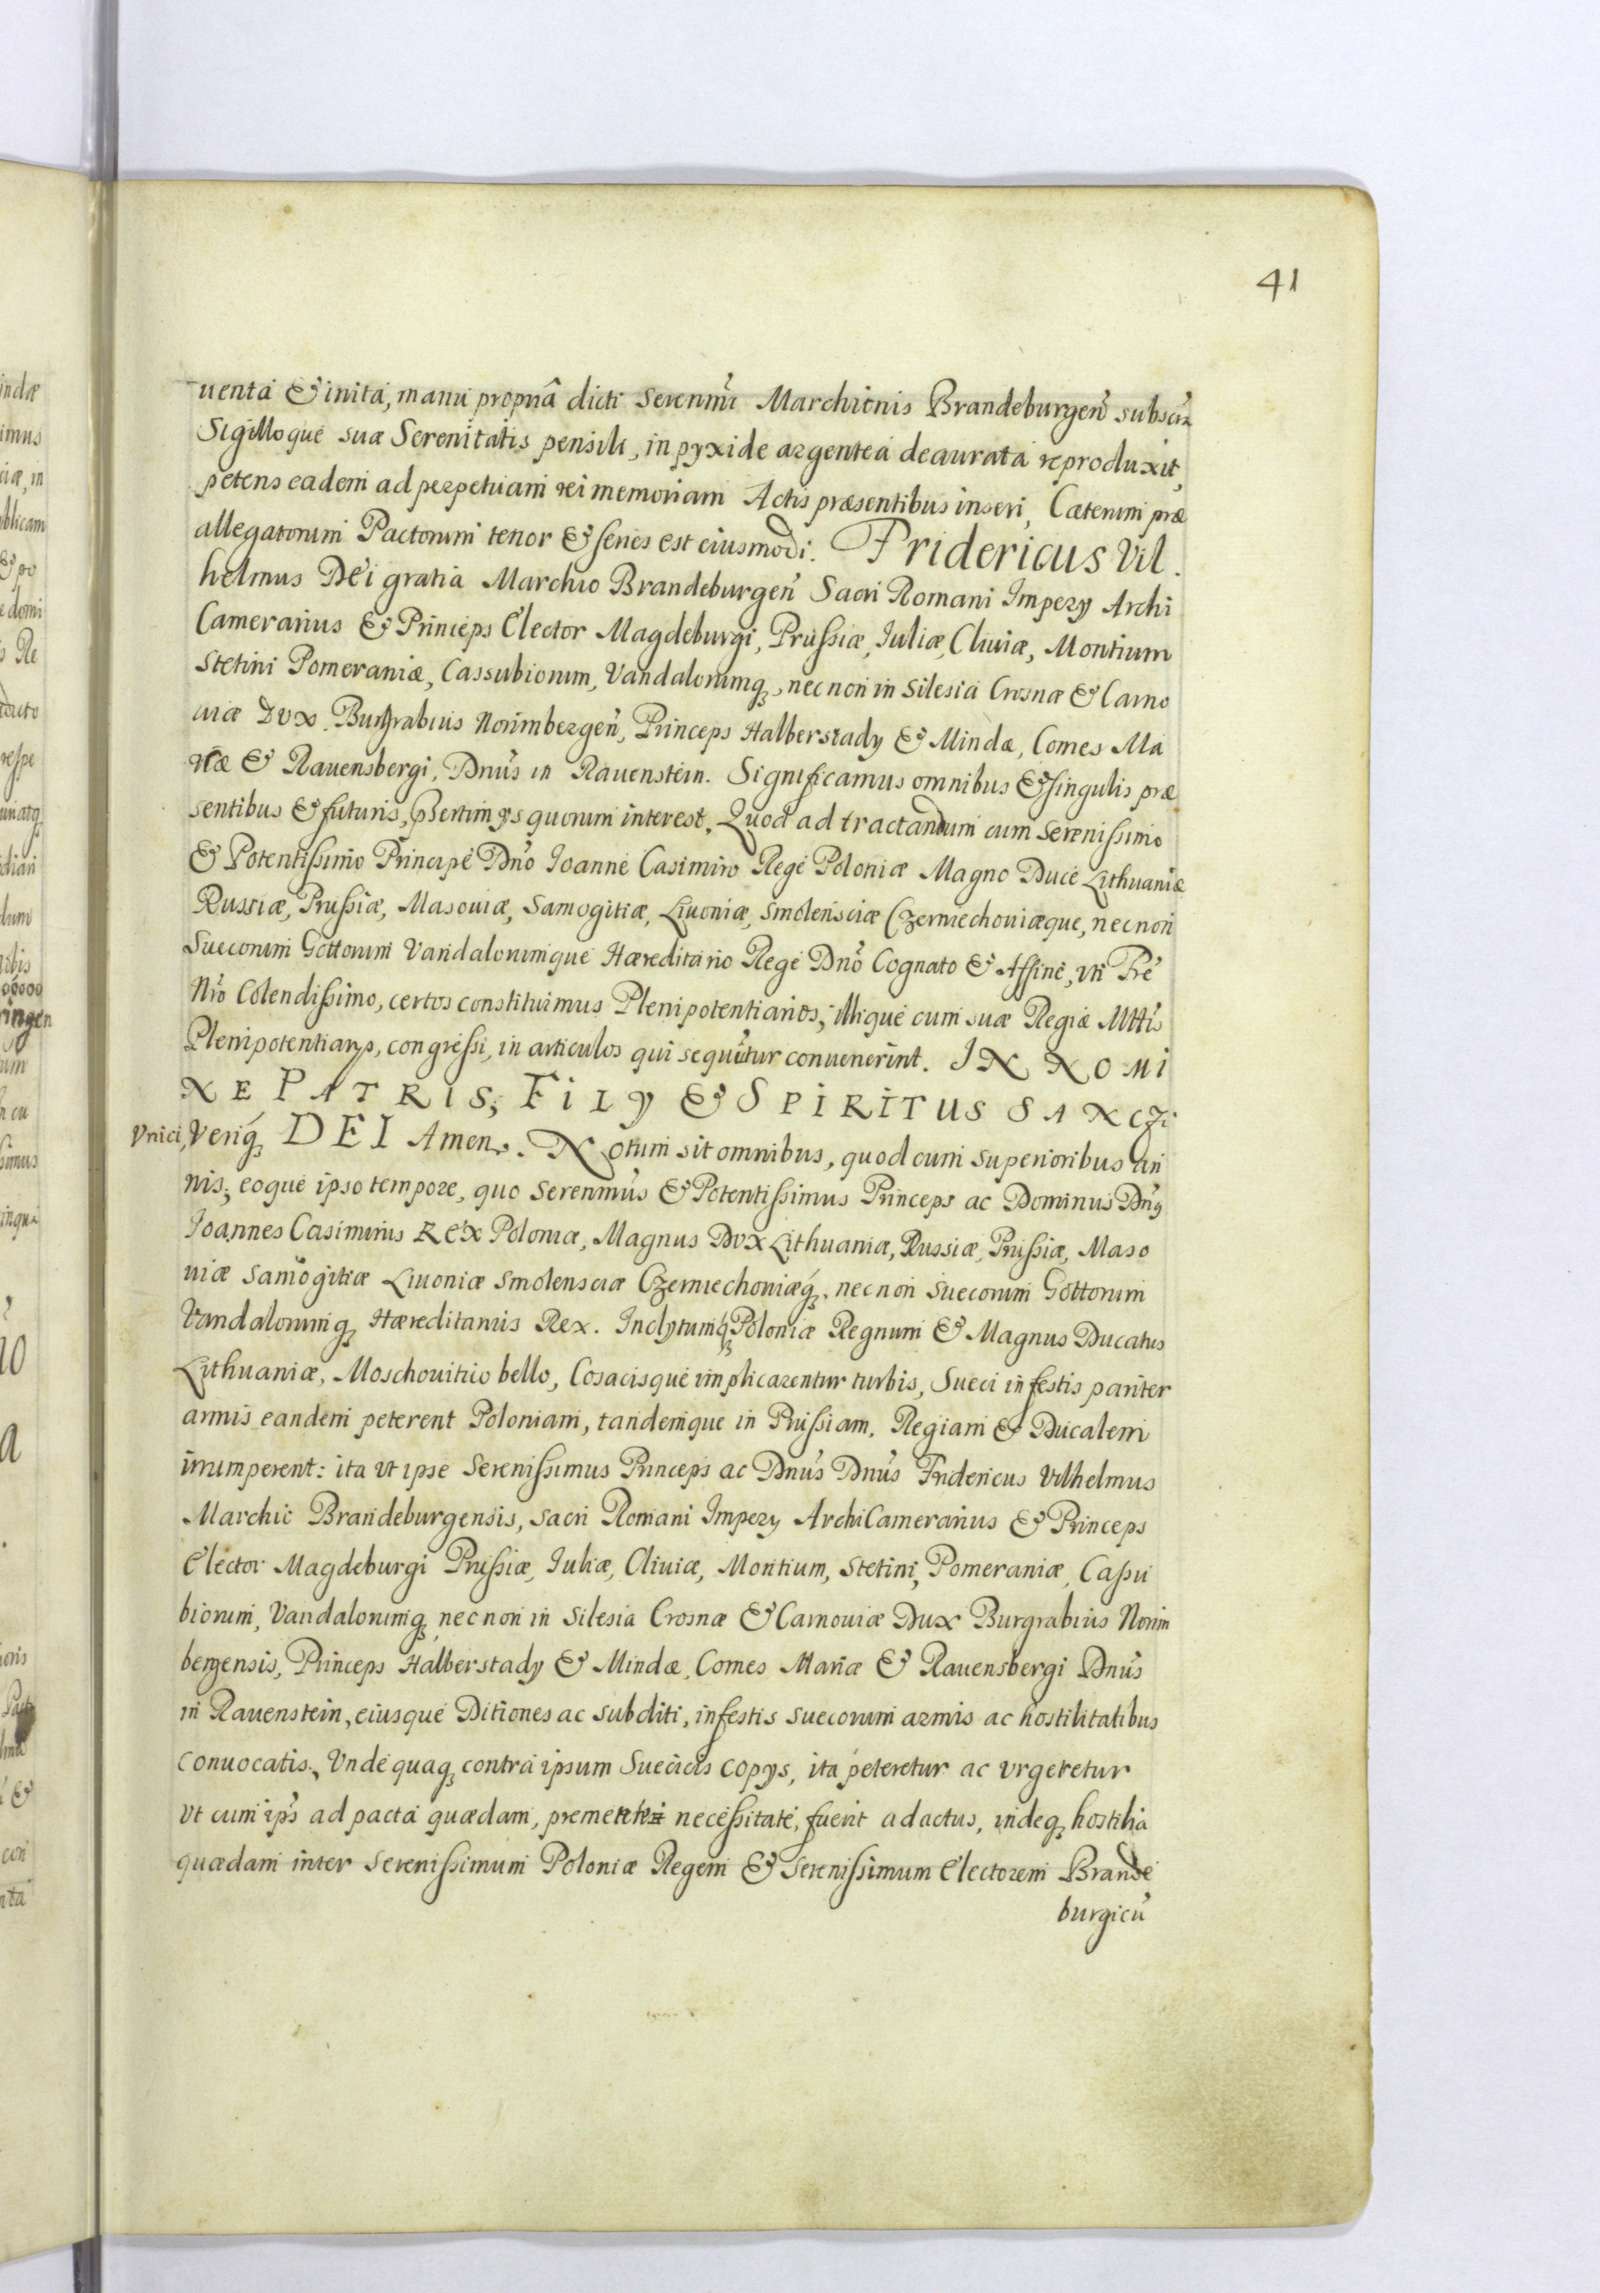 41
uenta & inita, manu propria dicti Serenmi Marchionis Brandeburgen subscr
Sigilloque suæ Serenitatis pensili, in pyxide argentea deaurata reproduxit,
petens eadem ad perpetuam rei memoriam Actis præsentibus inseri, Cæterum præ
allegatorum Pactorum tenor & series est eiusmodi. Fridericus Vil.
helmus Dei gratia Marchio Brandeburgen Sacri Romani Impery Archi
Camerarius & Princeps Elector Magdeburgi, Prussiæ, Iuliæ, Cliuiæ, Montium
Stetini Pomeraniæ, Cassubiorum, Vandalorumq, necnon in Silesia Crosnæ & Carno
uiæ Dux. Burgrabius Norimbergen, Princeps Halberstady & Mindæ, Comes Ma
rcæ & Rauensbergi, Dnus in Rauenstein. Significamus omnibus & singulis præ
sentibus & futuris, quorum interest. Quod ad tractandum cum Serenissimo
& Potentissimo Principe Dno Ioanne Casimiro Rege Poloniæ Magno Duce Lithuaniæ
Russiæ, Prussiæ, Masouiæ, Samogitiæ, Liuoniæ, Smolensciæ Czerniechouiæque, necnon
Suecorum Gottorum Vandalorumque Hæreditario Rege Dno Cognato & Affine, uti Fre
Nro Colendissimo, certos constituimus Plenipotentiarios, illique cum suæ Regiæ Mttis
Plenipotentiarys, congressi, in articulos qui sequutur conuenerint. IN NOMI
NE PATRIS, FILY & SPIRITUS SANCTI
Vnici, Veriq DEI Amen. Notum sit omnibus, quod cum superioribus an
nis, eoque ipso tempore, quo Serenmus & Potentissimus Princeps ac Dominus Dnus
Ioannes Casimirus REX Poloniæ, Magnus Dux Lithuaniæ, Russiæ, Prussiæ, Maso
uiæ Samogitiæ Liuoniæ Smolensciæ Czerniechoniæq, necnon Suecorum Gottorum
Vandalorumq Hæreditarius Rex. Inclytumq Poloniæ Regnum & Magnus Ducatus
Lithuaniæ, Moschouitico bello, Cosacisque implicarentur turbis, Sueci infestis pariter
armis eandem peterent Poloniam, tandemque in Prussiam, Regiam & Ducalem
irrumperent: ita ut ipse Serenissimus Princeps ac Dnus Dnus Fridericus Vilhelmus
Marchio Brandeburgensis, Sacri Romani Impery ArchiCamerarius & Princeps
Elector Magdeburgi Prussiæ, Iuliæ, Cliuiæ, Montium, Stetini, Pomeraniæ, Cassu
biorum, Vandalorumq necnon in Silesia Crosnæ & Carnouiæ Dux Burgrabius Norim
bergensis, Princeps Halberstady & Mindæ, Comes Mariæ & Rauensbergi Dnus
in Rauenstein, eiusque Ditiones ac subditi, infestis Suecorum armis ac hostilitatibus
conuocatis, Undequaq contra ipsum Suecicis copys, ita peteretur ac urgeretur
Vt cum ips ad pacta quædam, necessitate, fuerit adactus, indeq hostilia
quædam inter Serenissimum Poloniæ Regem & Serenissimum Electorem Brande
burgicu